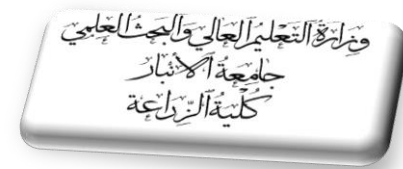 وَزَارَةُ التَّعْلِيمُ العَالِي وَالبَحْثُ العِلْمِي
جَامِعَةُ آلاَنْبَار
كُلِّيَةُ آلزِّرَاعَة